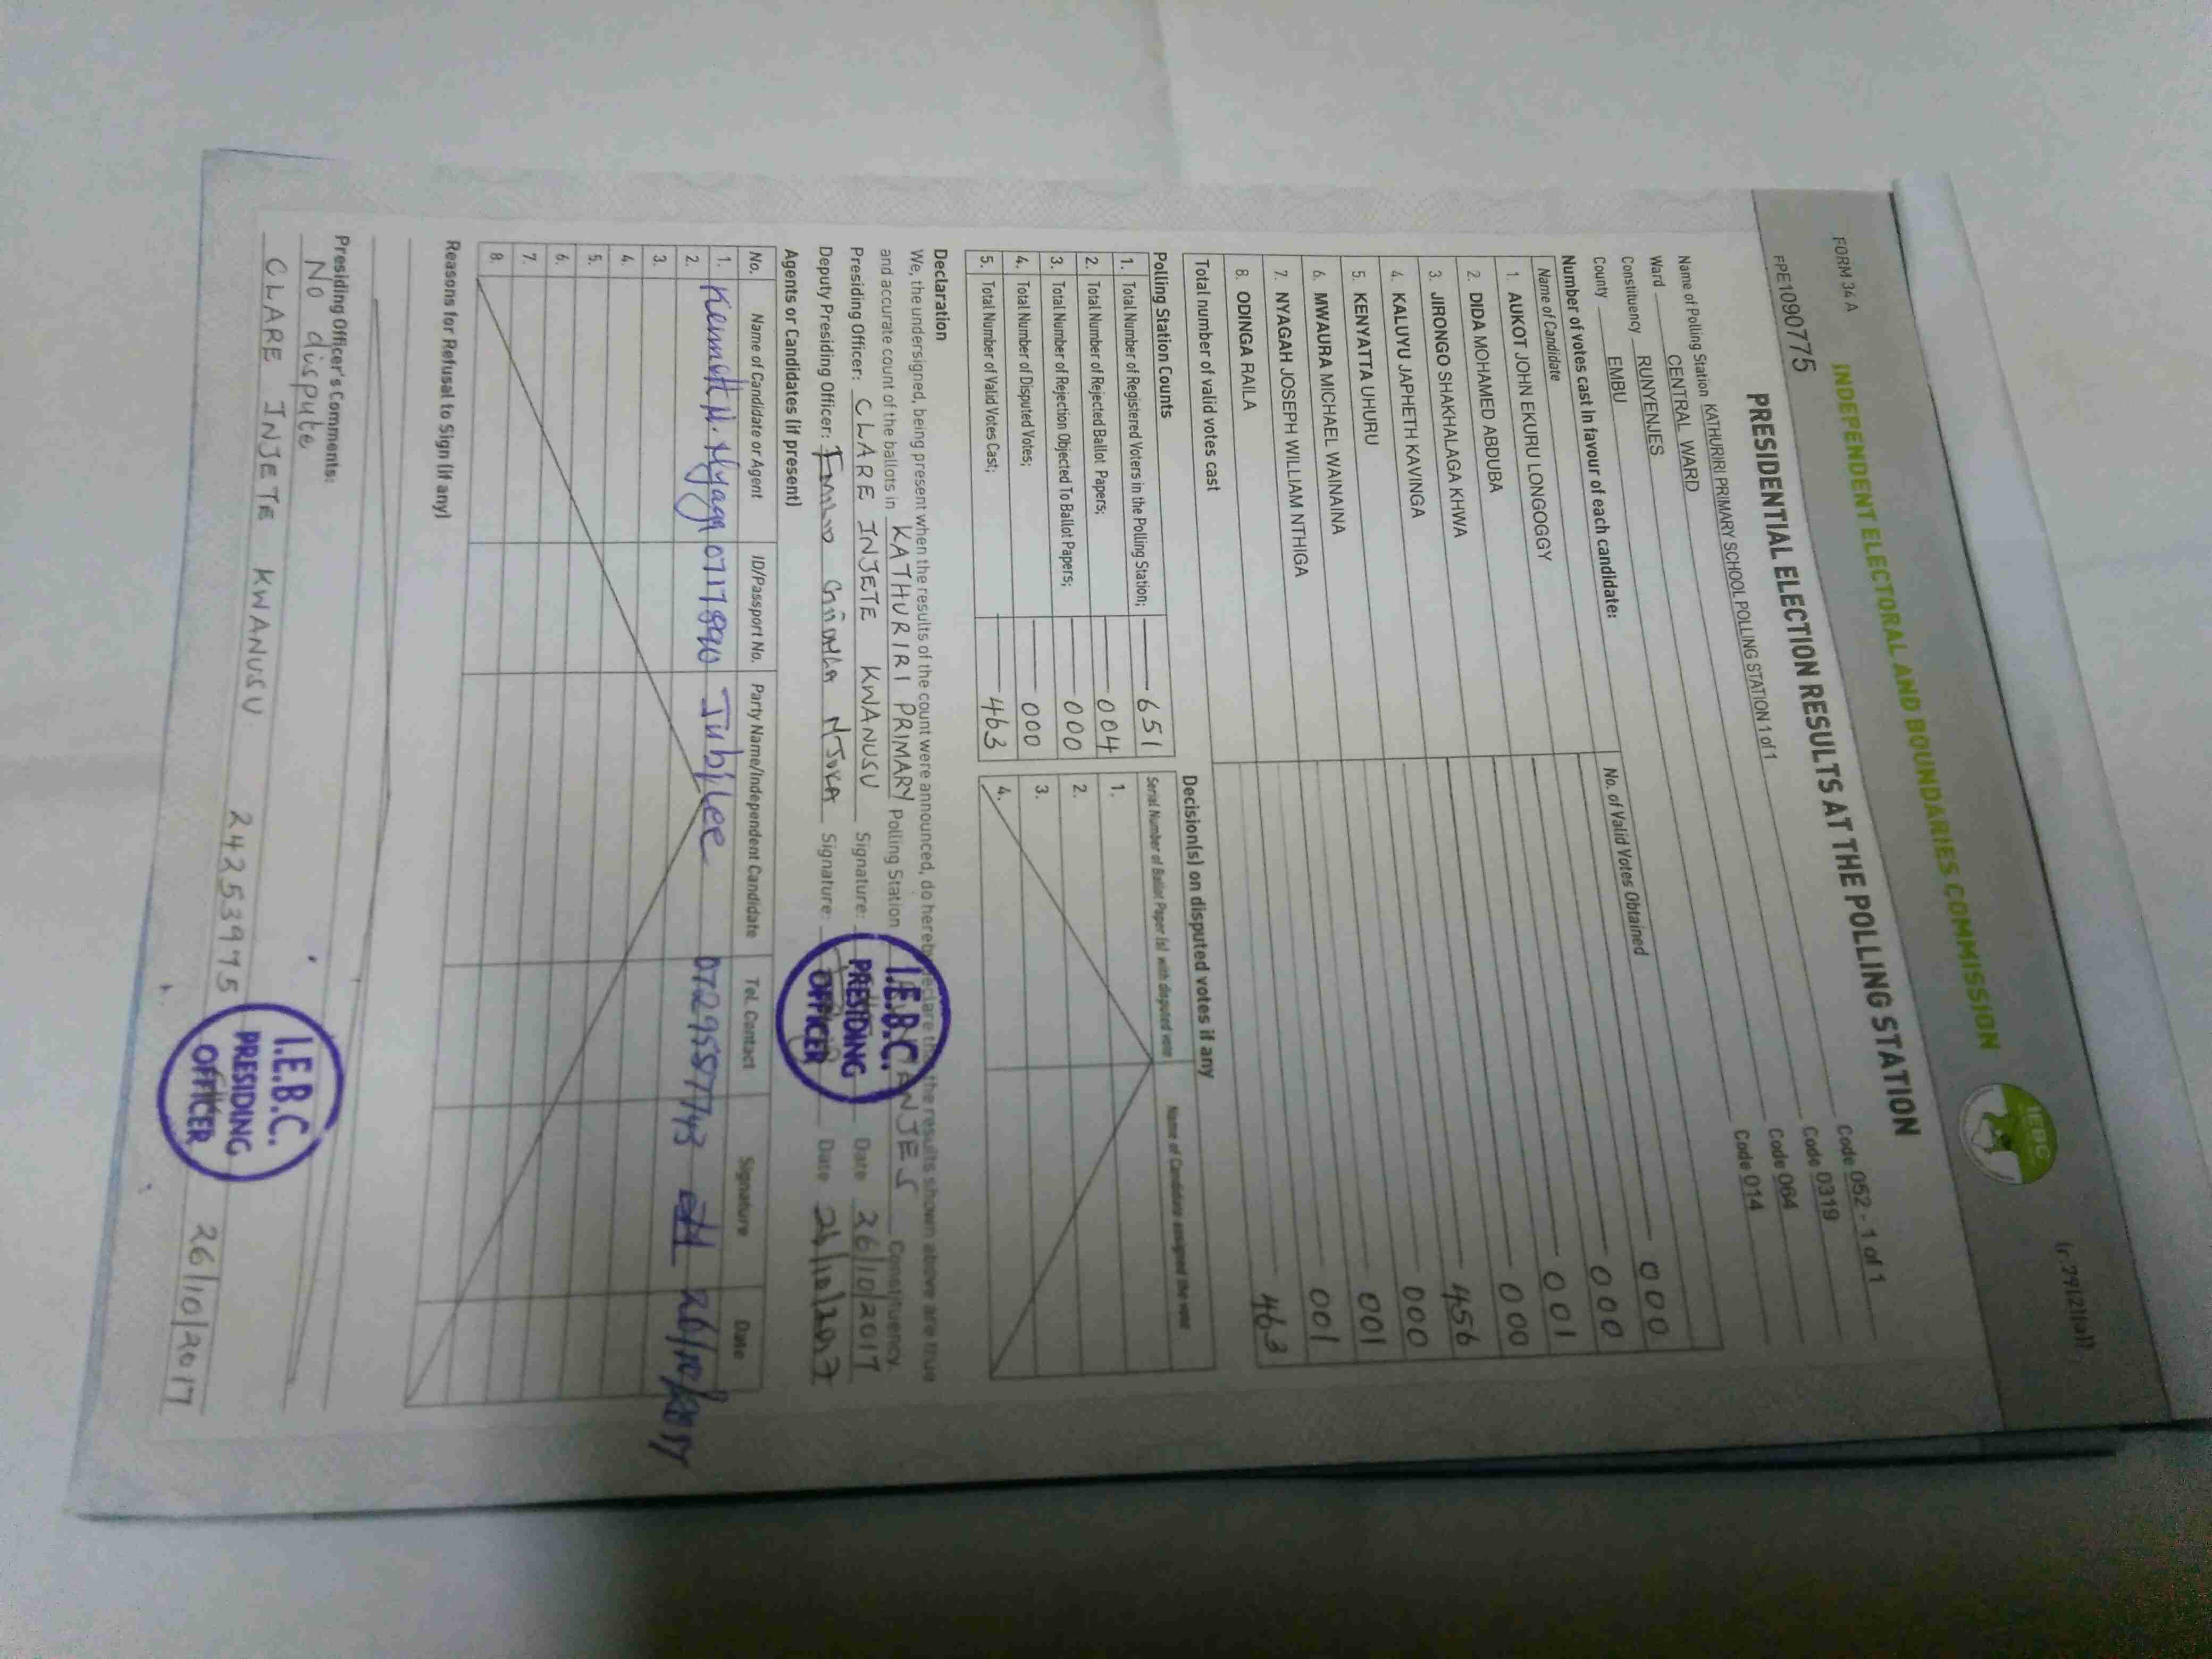 (r.79(2)(a))
INDEPENDENT ELECTORAL AND BOUNDARIES COMMISSION
IEBC
FORM 34 A
PRESIDENTIAL ELECTION RESULTS AT THE POLLING STATION
FPE1090775
Name of Polling Station KATHURIRI PRIMARY SCHOOL POLLING STATION 1 of 1 Code 052 - 1 of 1
Ward CENTRAL WARD Code 0319
Constituency RUNYENJES Code 064
County EMBU Code 014
Number of votes cast in favour of each candidate:
Name of Candidate No. of Valid Votes Obtained
1. AUKOT JOHN EKURU LONGOGGY 000
2. DIDA MOHAMED ABDUBA 000
3. JIRONGO SHAKHALAGA KHWA 001
4. KALUYU JAPHETH KAVINGA 000
5. KENYATTA UHURU 456
6. MWAURA MICHAEL WAINAINA 000
7. NYAGAH JOSEPH WILLIAM NTHIGA 001
8. ODINGA RAILA 001
Total number of valid votes cast 463
Polling Station Counts
1. Total Number of Registered Voters in the Polling Station; 651
2. Total Number of Rejected Ballot Papers; 004
3. Total Number of Rejection Objected To Ballot Papers; 000
4. Total Number of Disputed Votes; 000
5. Total Number of Valid Votes Cast; 463
Decision(s) on disputed votes if any
Serial Number of Ballot Paper (s) with disputed vote Name of Candidate assigned the vote
1.
2.
3.
4.
Declaration
We, the undersigned, being present when the results of the count were announced, do hereby declare that the results shown above are true
and accurate count of the ballots in KATHURIRI PRIMARY Polling Station RUNYENJES Constituency
Presiding Officer: CLARE INJETE KWANUSU Signature: Date 26/10/2017
Deputy Presiding Officer: NJUKA Signature: Date 26/10/2017
I.E.B.C.
PRESIDING
OFFICER
Agents or Candidates (if present)
No. Name of Candidate or Agent ID/Passport No. Party Name/Independent Candidate Tel. Contact Signature Date
1. Kenneth N. Nyaga 0717890 Jubilee 26/10/2017
2.
3.
4.
5.
6.
7.
8.
Reasons for Refusal to Sign (if any)
Presiding Officer's Comments:
No dispute
CLARE INJETE KWANUSU 24253975 26/10/2017
I.E.B.C.
PRESIDING
OFFICER